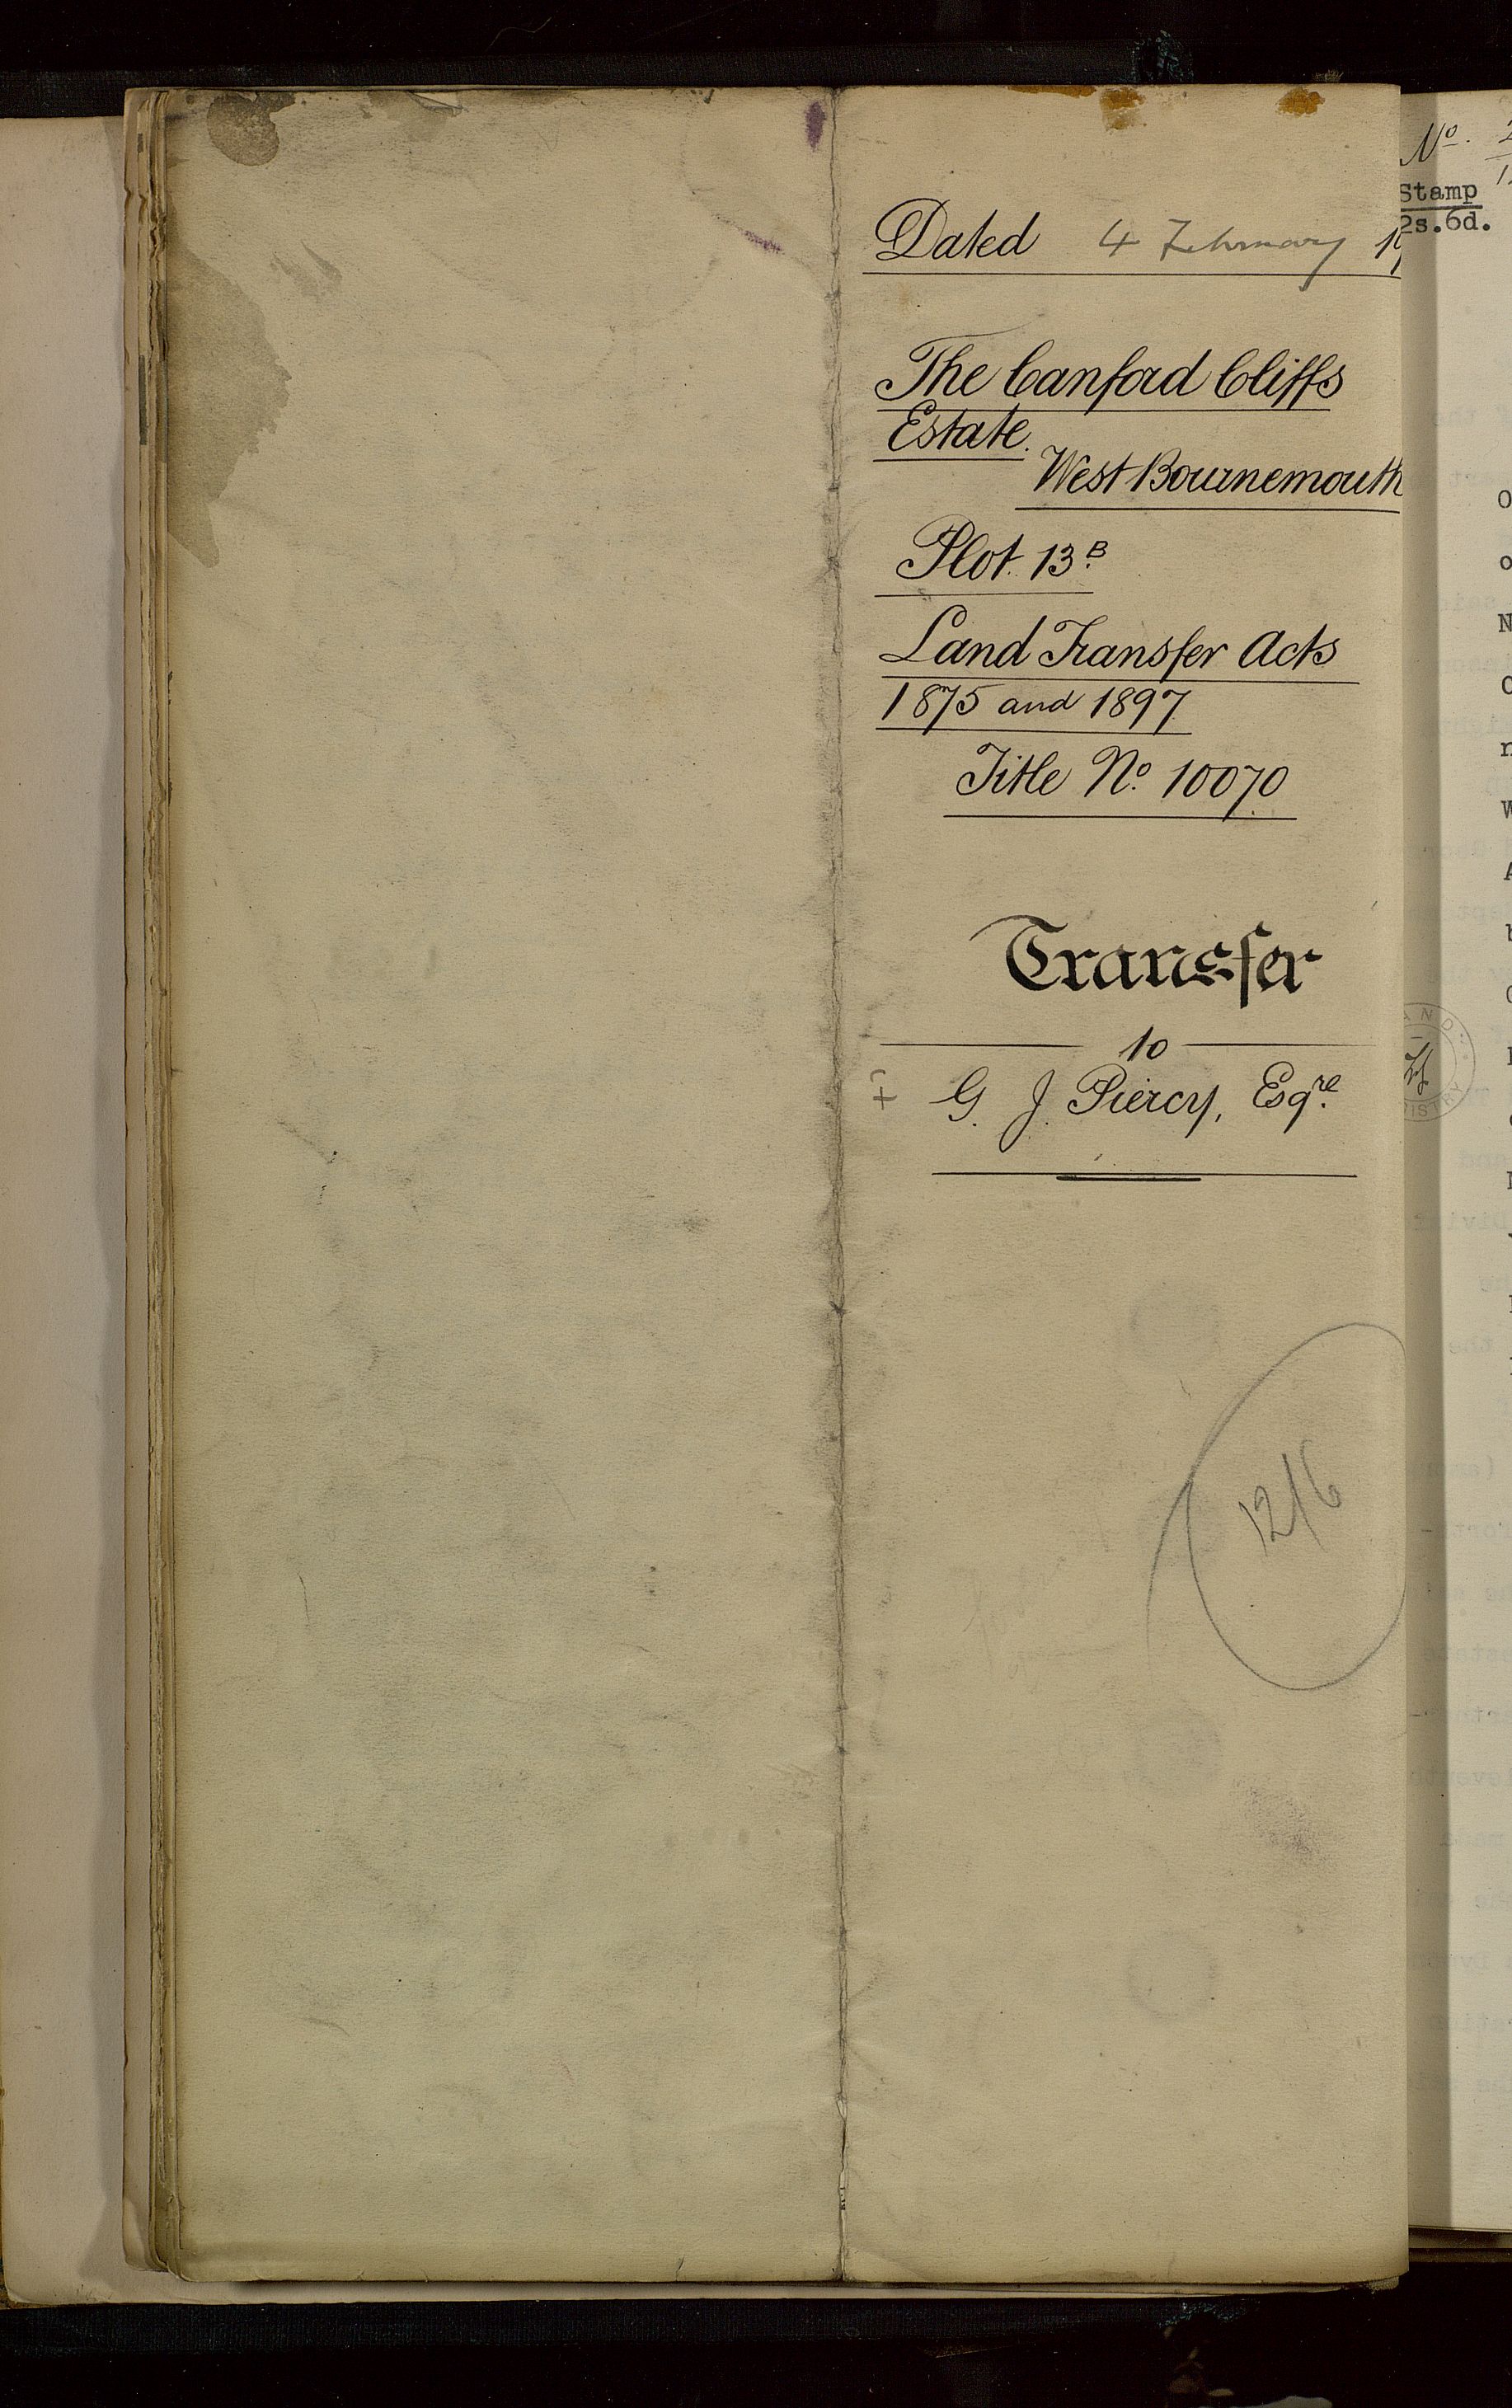 Dated 4 February 19
The Canford Cliffs
Estate.
West Bournemouth
Plot 13B
Land Transfer Acts
1875 and 1897
Title No. 10070
Transfer
to
G. J. Piercy, Esqre.
12/6
No.
Stamp
2s.6d.